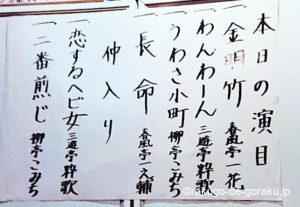 本日の演目
一 金明竹 春風亭一花
一 わんわーん 三遊亭粋歌
一 うわさ小町 柳亭こみち
一 長命 春風亭一之輔
仲入り
一 恋するヘビ女 三遊亭粋歌
一 二番煎じ 柳亭こみち
rakugo-de-goraku.jp